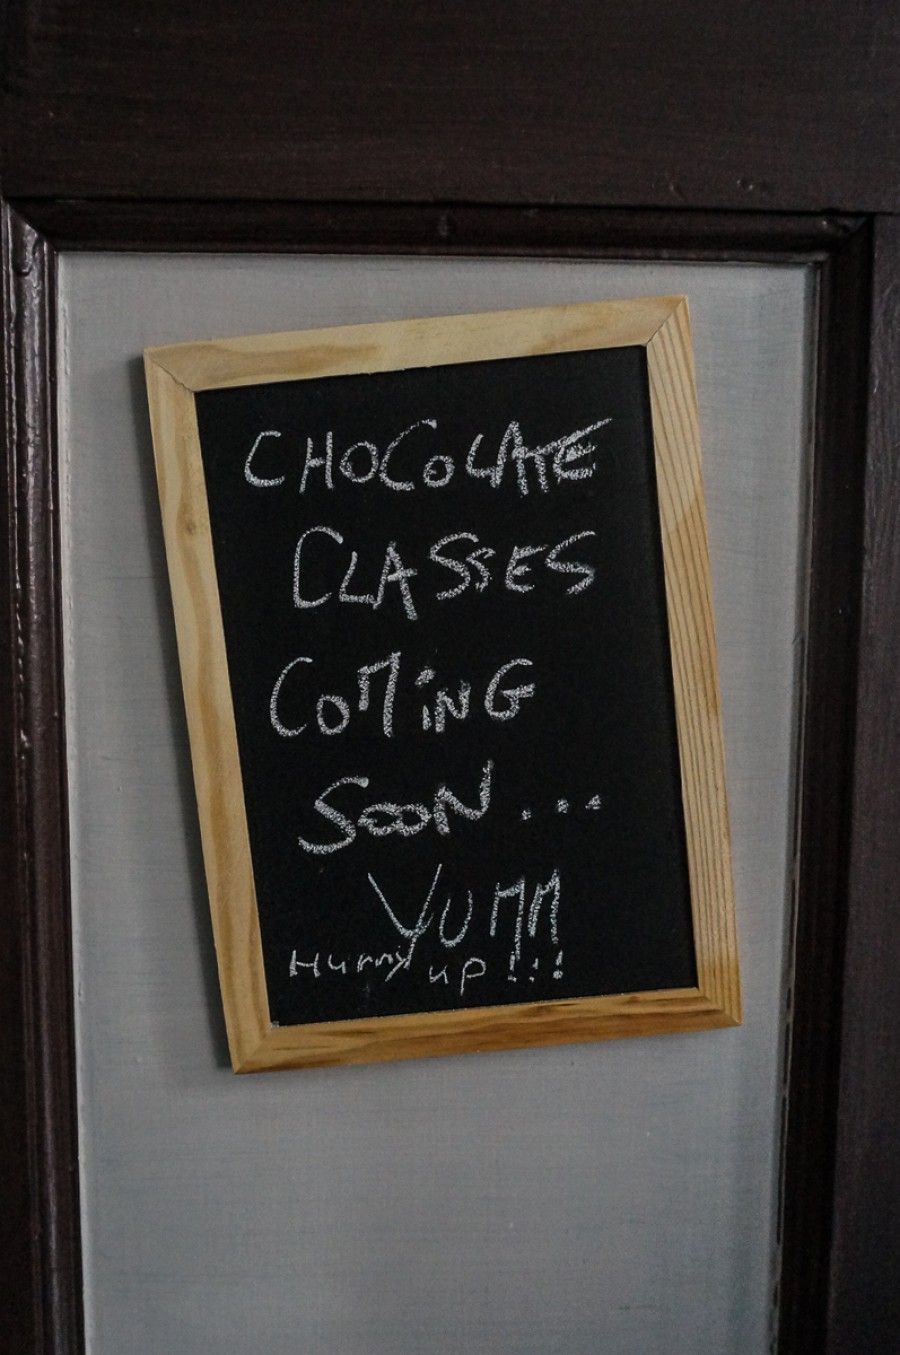 CHOCOLATE
CLASSES
COMiNG
SOON...
YUMM
Hurry up!!!